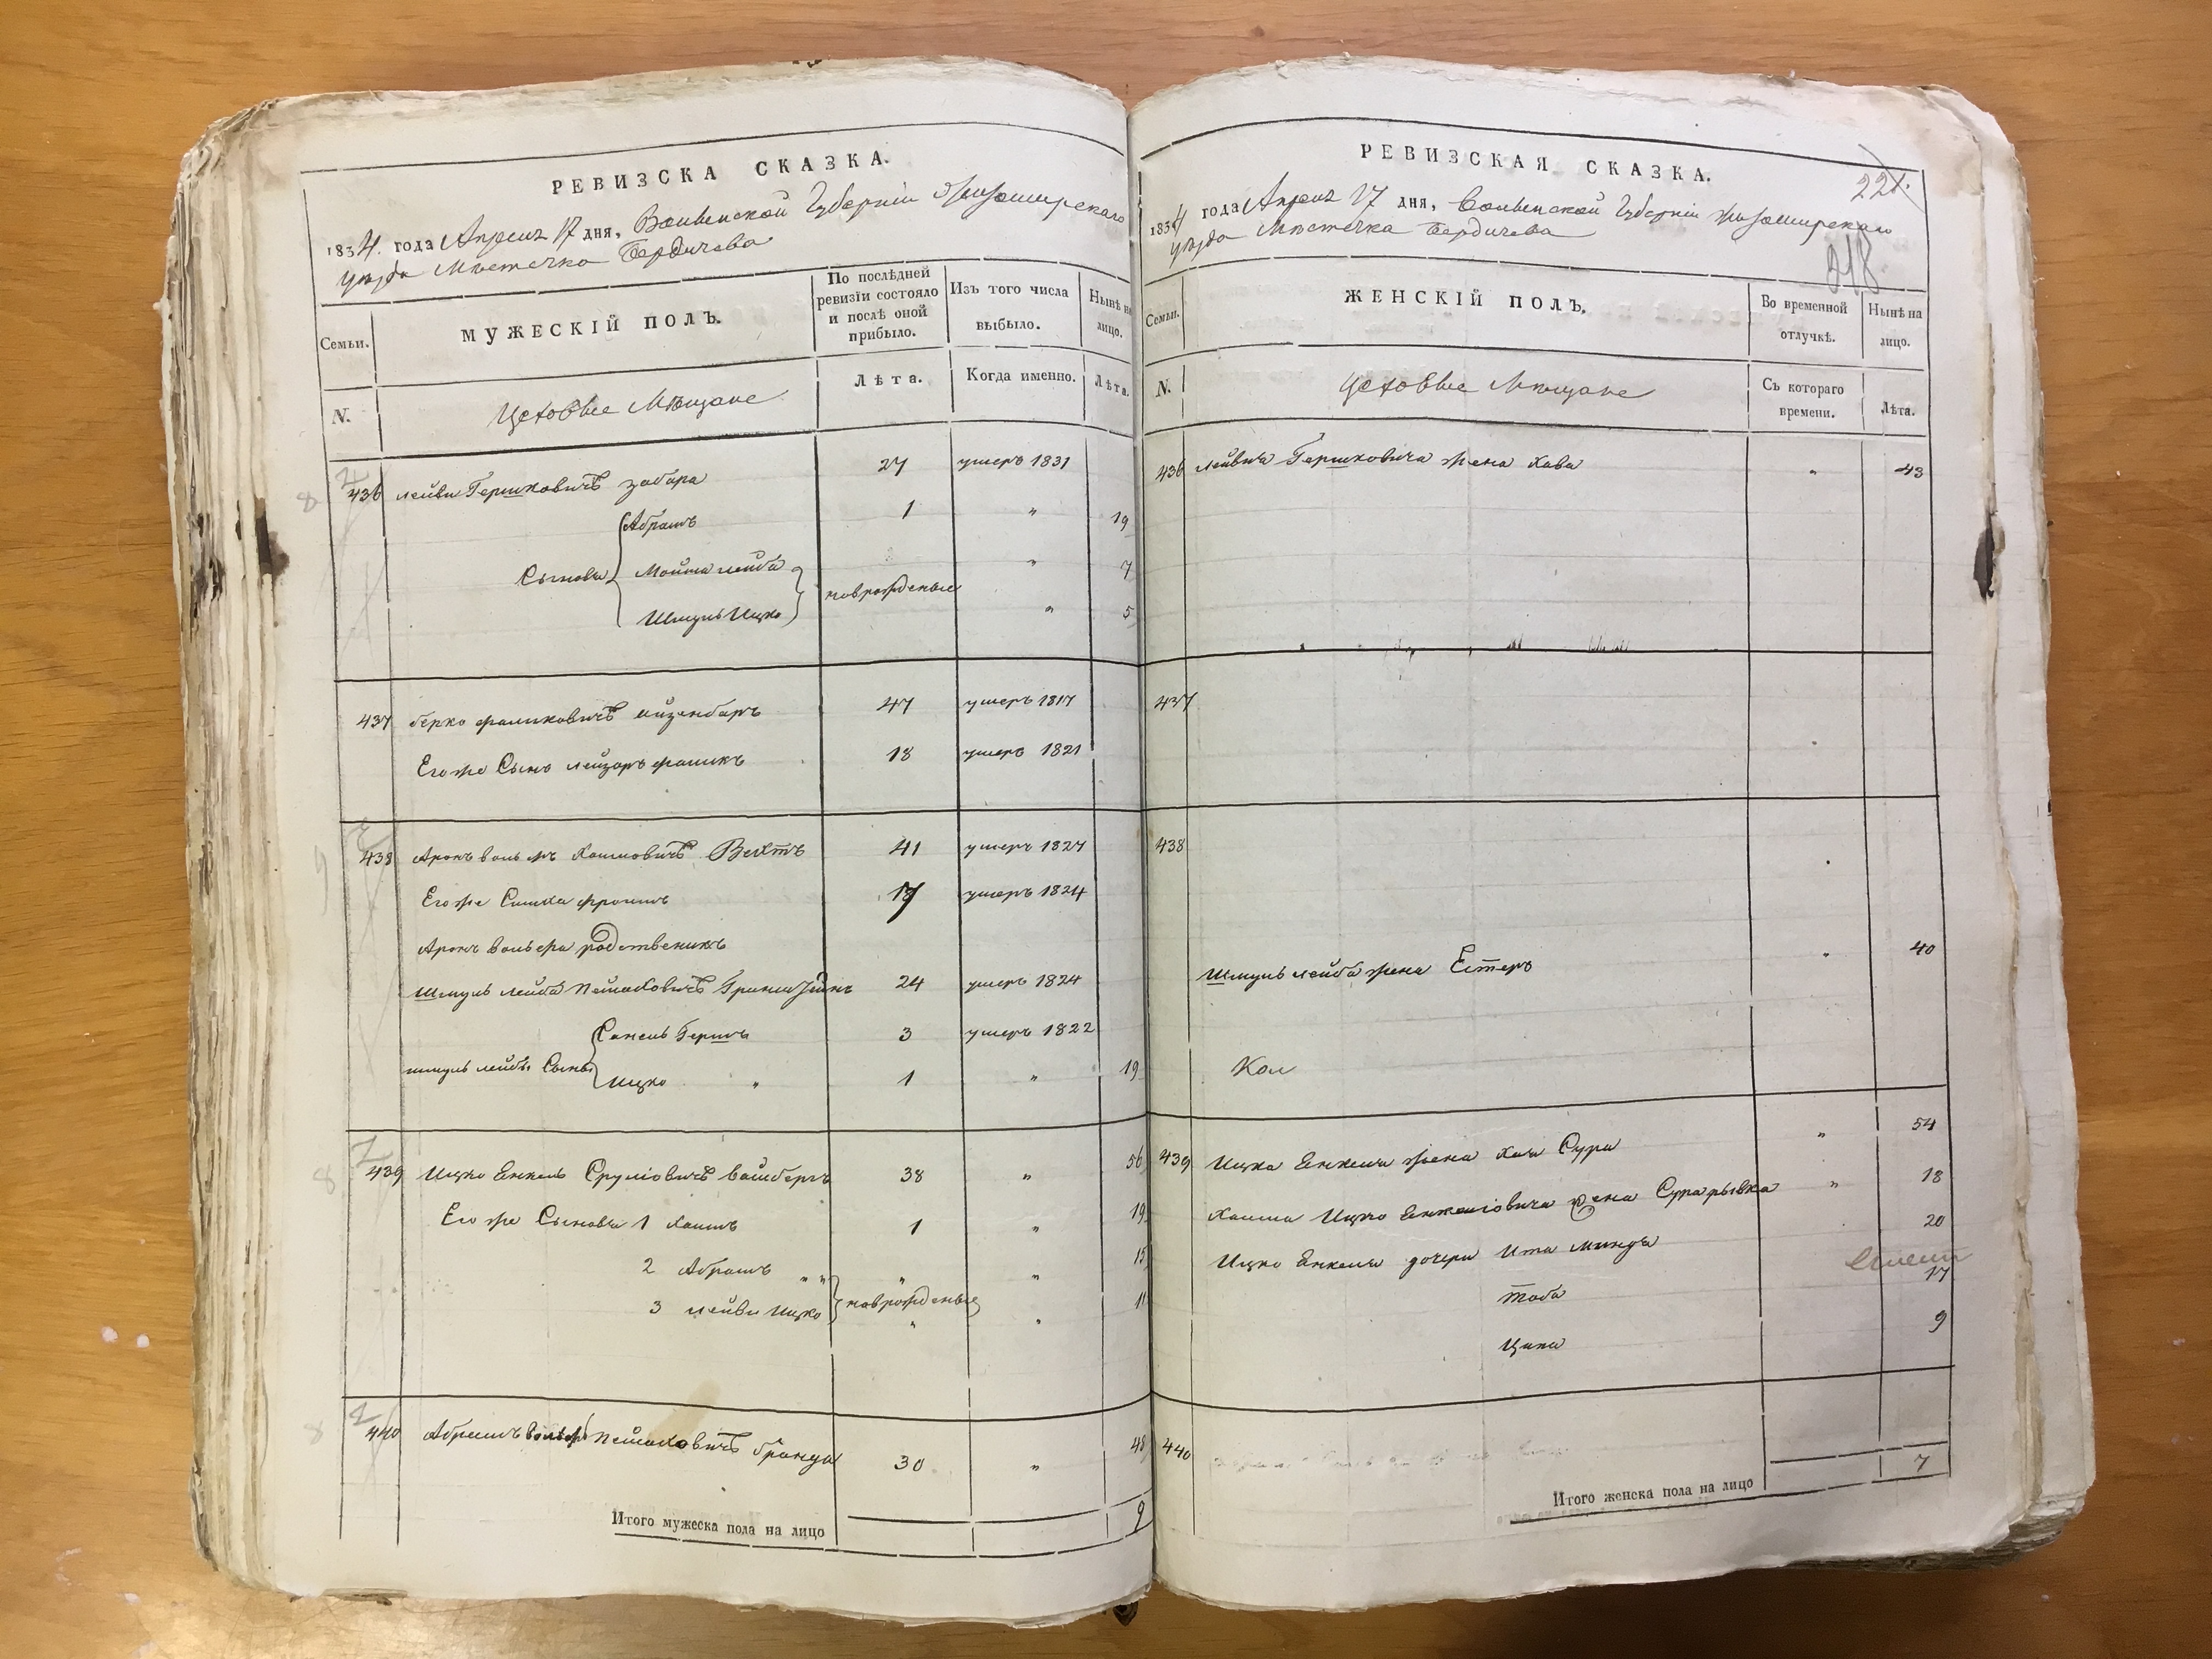 РЕВИЗСКА СКАЗКА.
1834. года Апреля 17 дня, Волынской Губерніи Житомирскаго
уезда Местечка Бердичева
Семьи.
МУЖЕСКІЙ ПОЛЪ.
По послѣдней ревизіи состояло и послѣ оной прибыло.
Изъ того числа выбыло.
Нынѣ на лицо.
N.
Цеховые Мещане
Лѣта.
Когда именно.
Лѣта.
436 Лейви Гершковичъ забара 27 умеръ 1831
Абрамъ 1 " 19
Сыновья Мошка лейба " 7
новрожденые
Шмуль Ицко " 5
437 берко фаликовичъ айзенбаръ 47 умеръ 1817
Егоже Сынъ лейзоръ фаликъ 18 умеръ 1821
438 Аронъ вольфъ Хаимовичъ Вехтъ 41 умеръ 1827
Егоже фроимъ умеръ 1824
Аронъ вольфа родственикъ
Шмуль лейба Пейсаховичъ 24 умеръ 1824
Санель Гершъ 3 умеръ 1822
шмуль лейбы Сыны
Ицко " 1 " 19
439 Ицко Енкель Сруліовичъ вайсбергъ 38 " 56
Егоже Сыновья 1 Хаимъ 1 " 19
2 Абрамъ " " " " 15
3 лейви Ицко новрожденые " " 11
440 Абрамъ вольфъ Пейсаховичъ бронда 30 " 48
Итого мужеска пола на лицо 9
РЕВИЗСКАЯ СКАЗКА.
221.
1834 года Апреля 17 дня, Волынской Губерніи Житомирскаго
уезда Местечка Бердичева
218
Семьи.
ЖЕНСКІЙ ПОЛЪ.
Во временной отлучкѣ.
Нынѣ на лицо.
N.
Цеховые Мещане
Съ котораго времени.
Лѣта.
436 Лейвича Гершковича жена Хава " 43
437
438
Шмуль лейба жена Естеръ " 40
Кол
439 Ицка Енкеля жена Хая Сура " 54
Хаима Ицко Енкеліовича жена Сура рывка " 18
Ицко Енкеля дочери Ита миндя 20
Тоба 17
Ципа 9
440
Итого женска пола на лицо 7